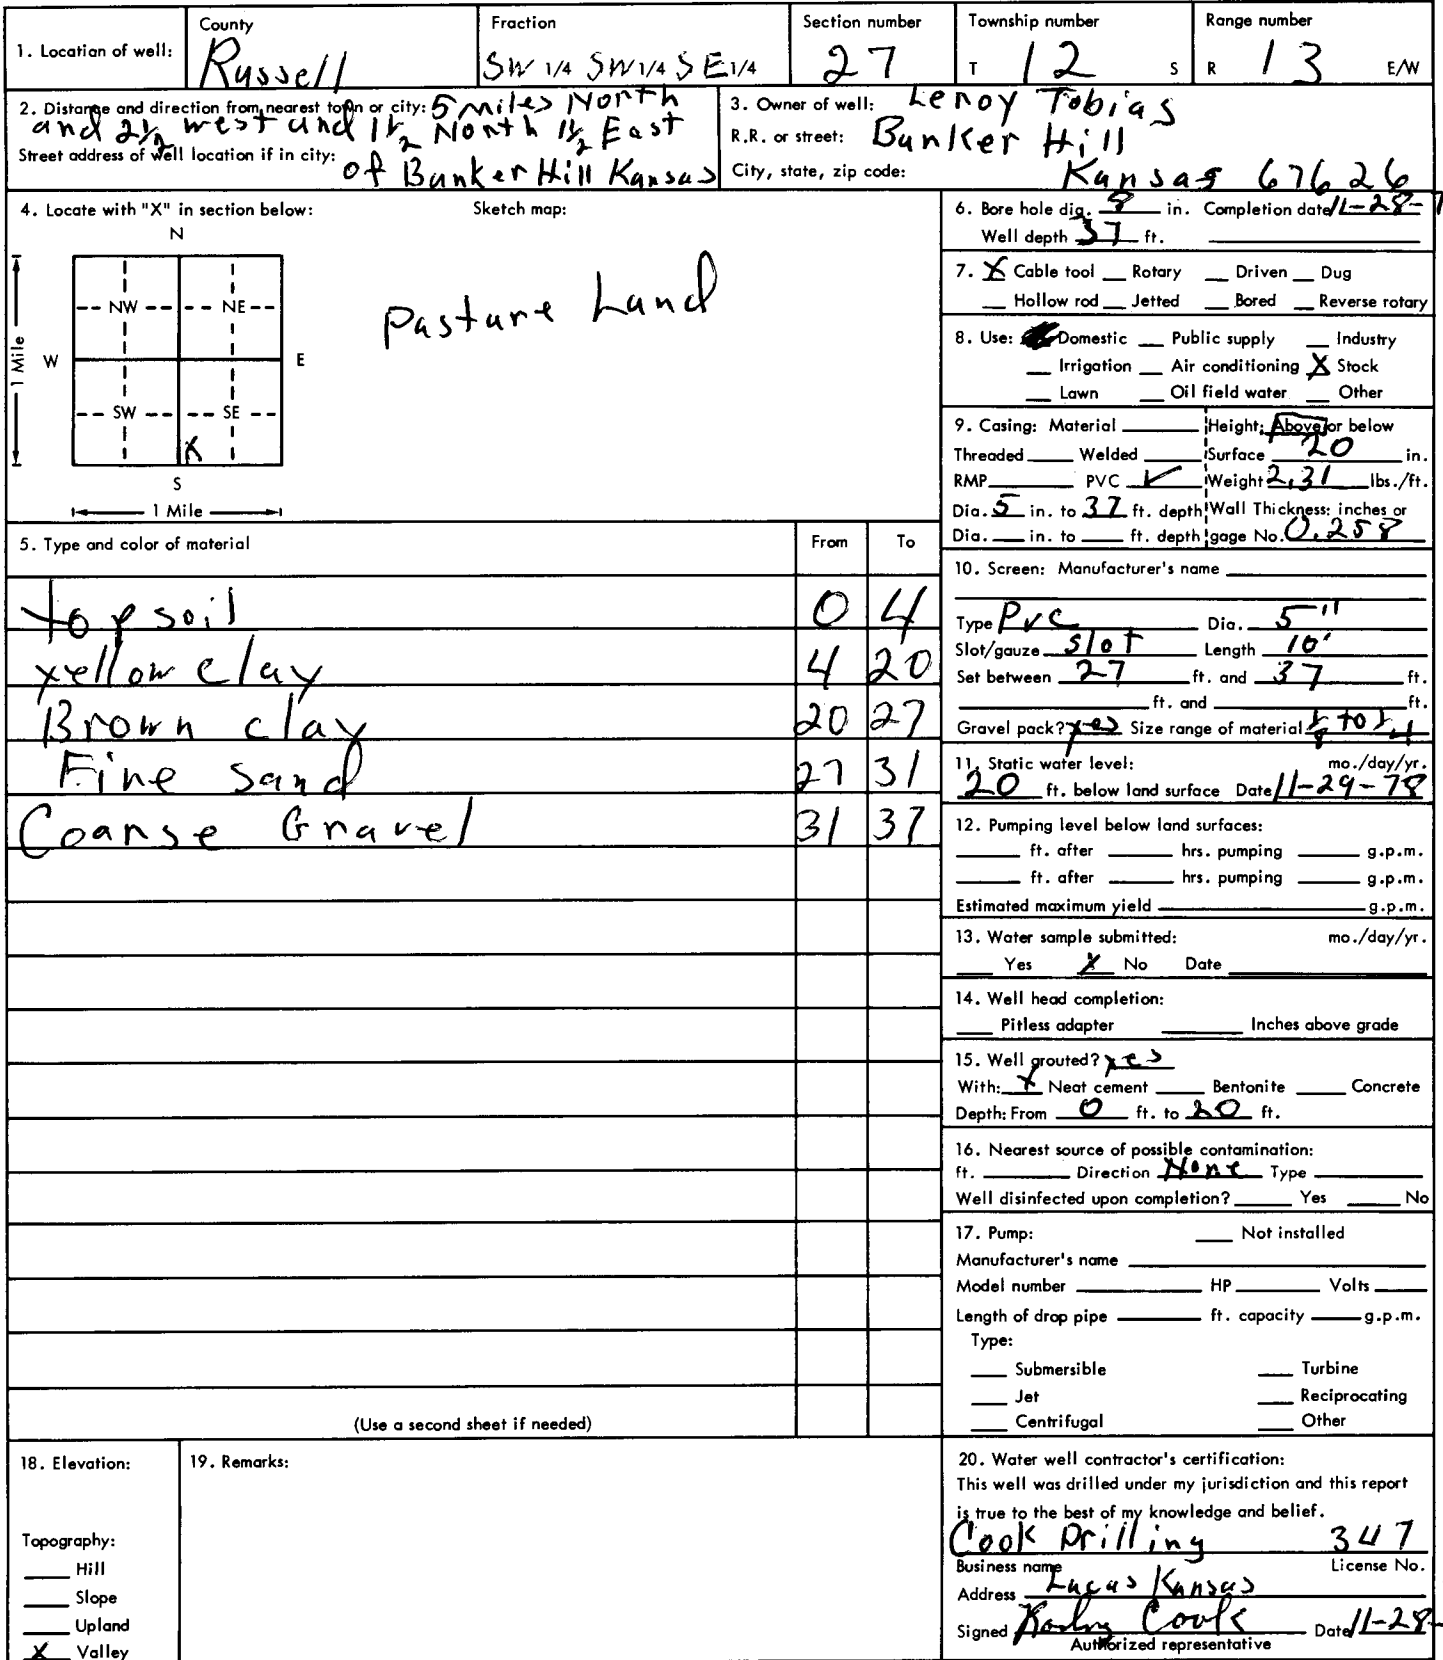 1. Location of well:
County
Russell
Fraction
SW 1/4 SW 1/4 SE 1/4
Section number
27
Township number
T 12 S
Range number
R 13 E/W
2. Distance and direction from nearest town or city: 5 miles North
and 2 1/2 west and 1 1/2 North 1 1/2 East
Street address of well location if in city:
of Bunker Hill Kansas
3. Owner of well: Leroy Tobias
R.R. or street: Bunker Hill
City, state, zip code: Kansas 67626
4. Locate with "X" in section below:
Sketch map:
N
NW NE
W E
1 Mile
SW SE
X
S
1 Mile
Pasture Land
5. Type and color of material From To
topsoil 0 4
yellow clay 4 20
Brown clay 20 27
Fine sand 27 31
Coarse Gravel 31 37
(Use a second sheet if needed)
6. Bore hole dia. 8 in. Completion date 11-28-7
Well depth 37 ft.
7. X Cable tool __ Rotary __ Driven __ Dug
__ Hollow rod __ Jetted __ Bored __ Reverse rotary
8. Use: Domestic __ Public supply __ Industry
__ Irrigation __ Air conditioning X Stock
__ Lawn __ Oil field water __ Other
9. Casing: Material ____ Height: Above or below
Threaded ____ Welded ____ Surface 20 in.
RMP ____ PVC ✓ Weight 2.31 lbs./ft.
Dia. 5 in. to 37 ft. depth Wall Thickness: inches or
Dia. __ in. to __ ft. depth gage No. 0.258
10. Screen: Manufacturer's name ____
Type PVC Dia. 5"
Slot/gauze slot Length 10'
Set between 27 ft. and 37 ft.
____ ft. and ____ ft.
Gravel pack? yes Size range of material 1/8 to 1/4
11. Static water level: mo./day/yr.
20 ft. below land surface Date 11-29-78
12. Pumping level below land surfaces:
____ ft. after ____ hrs. pumping ____ g.p.m.
____ ft. after ____ hrs. pumping ____ g.p.m.
Estimated maximum yield ____ g.p.m.
13. Water sample submitted: mo./day/yr.
__ Yes X No Date ____
14. Well head completion:
__ Pitless adapter ____ Inches above grade
15. Well grouted? yes
With: X Neat cement __ Bentonite __ Concrete
Depth: From 0 ft. to 20 ft.
16. Nearest source of possible contamination:
ft. ____ Direction None Type ____
Well disinfected upon completion? ____ Yes ____ No
17. Pump: __ Not installed
Manufacturer's name ____
Model number ____ HP ____ Volts ____
Length of drop pipe ____ ft. capacity ____ g.p.m.
Type:
__ Submersible __ Turbine
__ Jet __ Reciprocating
__ Centrifugal __ Other
18. Elevation:
Topography:
__ Hill
__ Slope
__ Upland
X Valley
19. Remarks:
20. Water well contractor's certification:
This well was drilled under my jurisdiction and this report
is true to the best of my knowledge and belief.
Cook Drilling 347
Business name License No.
Address Lucas Kansas
Signed Cook Date 11-28-
Authorized representative